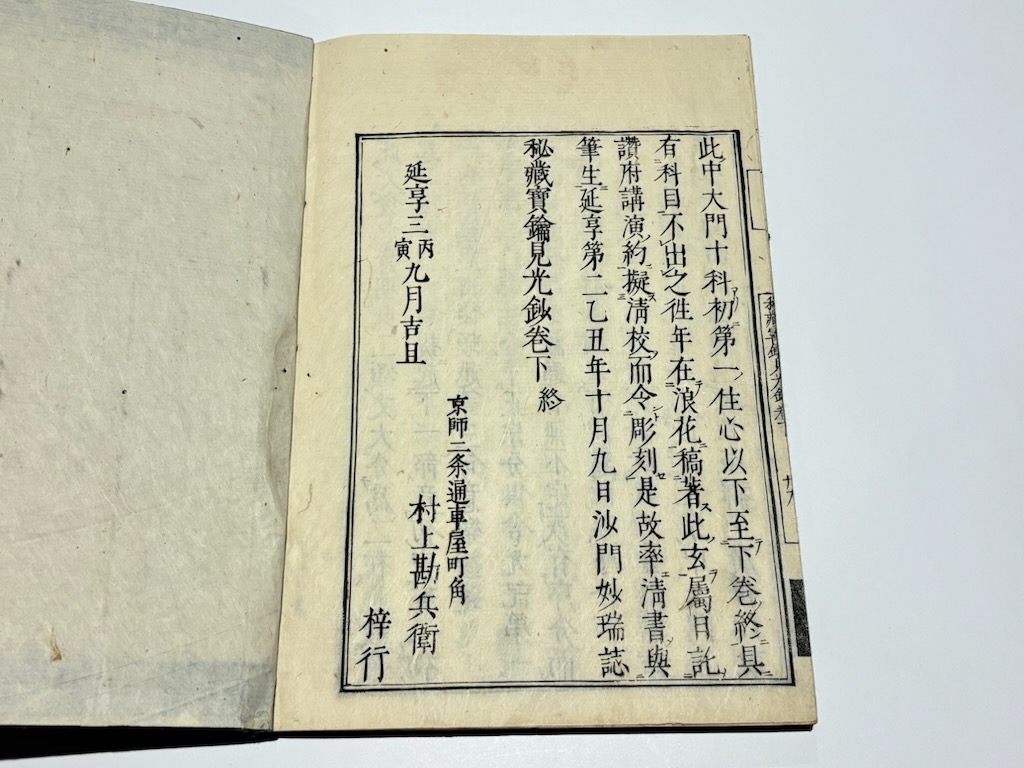 此中大門十科初第一住心以下至下巻終具
有科目不出之徃年在浪花稿著此玄屬日訖
讚府講演約擬淸校而令彫刻是故率淸書與
筆生延享第二乙丑年十月九日沙門妙瑞誌
秘藏寶鑰見光鈔卷下 終
延享三丙寅九月吉旦
京師二条通車屋町角
村上勘兵衛
梓行